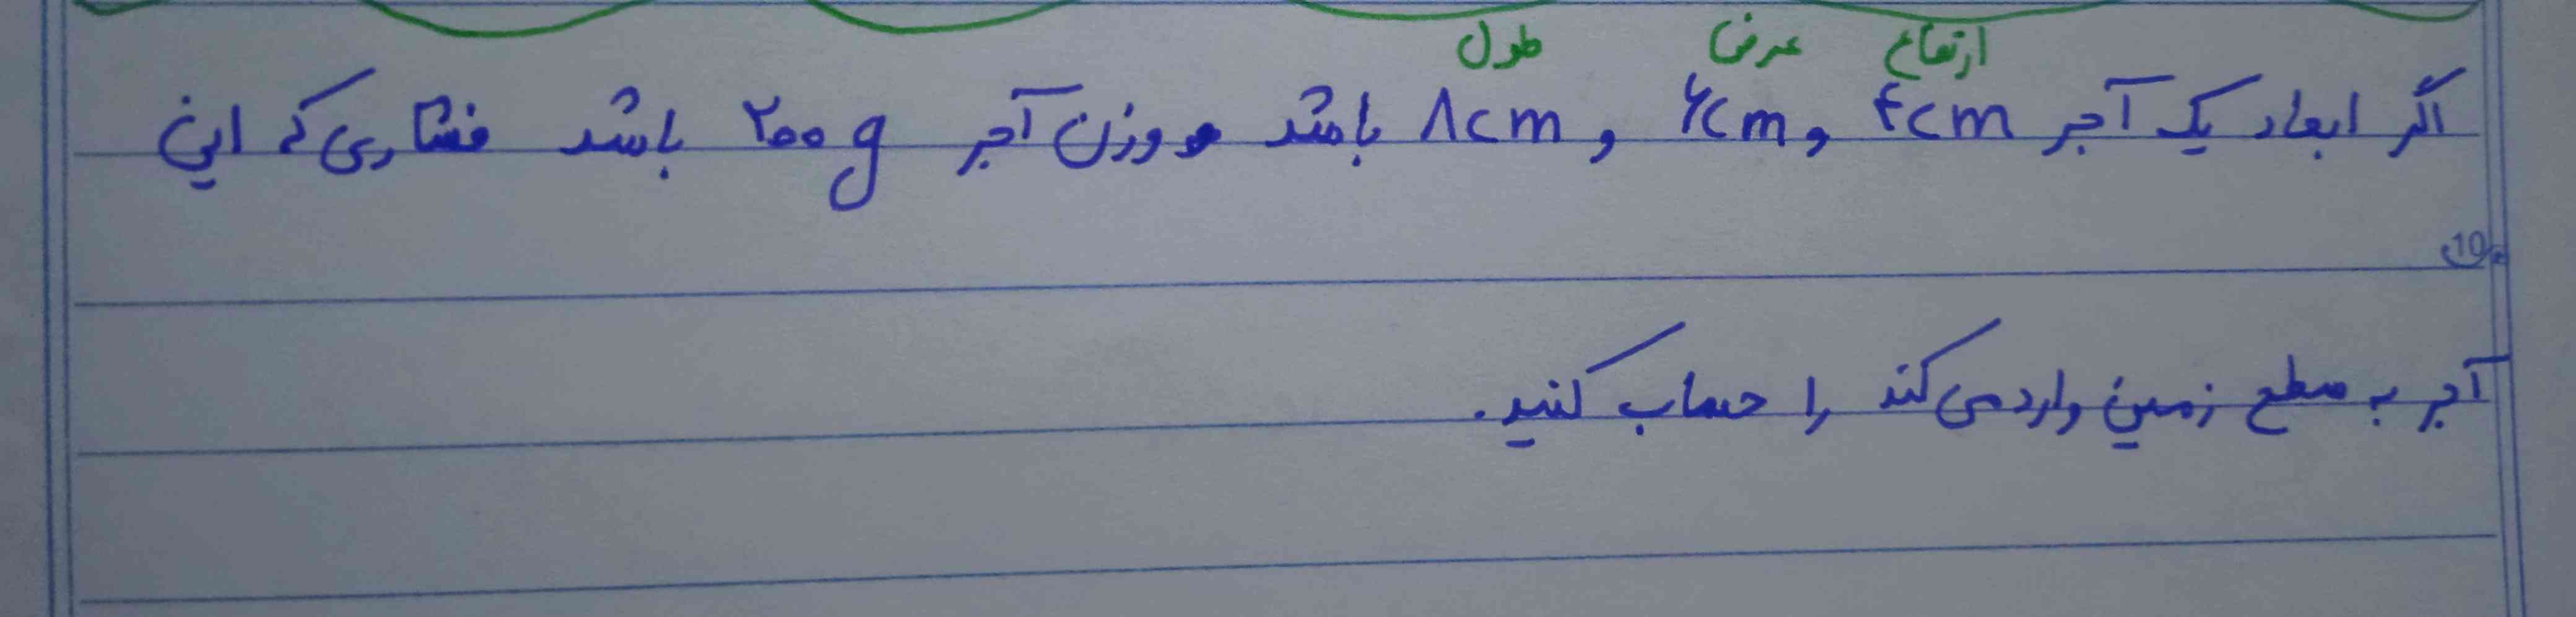 ارتفاع عرض طول
اگر ابعاد یک آجر ۴cm و ۶cm و ۸cm باشد و وزن آجر ۲۰۰g باشد فشاری که این
10
آجر به سطح زمین وارد می کند را حساب کنید.